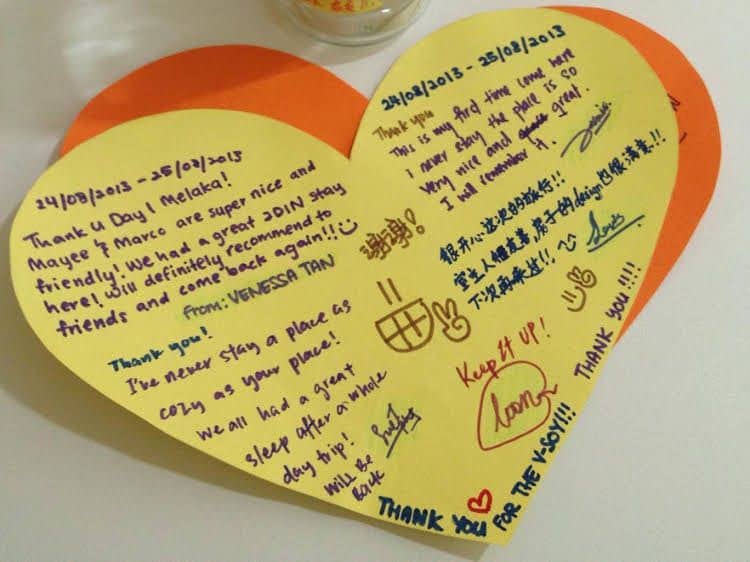 24/08/2013 - 25/08/2013
Thank u Day1 Melaka!
Mayee & Marco are super nice and
friendly! We had a great 2D1N stay
here! Will definitely recommend to
friends and come back again!!
From: VENESSA TAN
Thank you!
I've never stay a place as
cozy as your place!
We all had a great
sleep after a whole
day trip!
Will Be
Back
24/08/2013 - 25/08/2013
Thank you
This is my first time come here
I never stay the place is so
very nice and great.
I will remember it.
谢谢!
很开心这次的旅行!!
室主人很友善,房子的design也很满意!!
下次再来过!!
Keep It UP!
THANK YOU !!!!
THANK YOU FOR THE V-SOY!!!